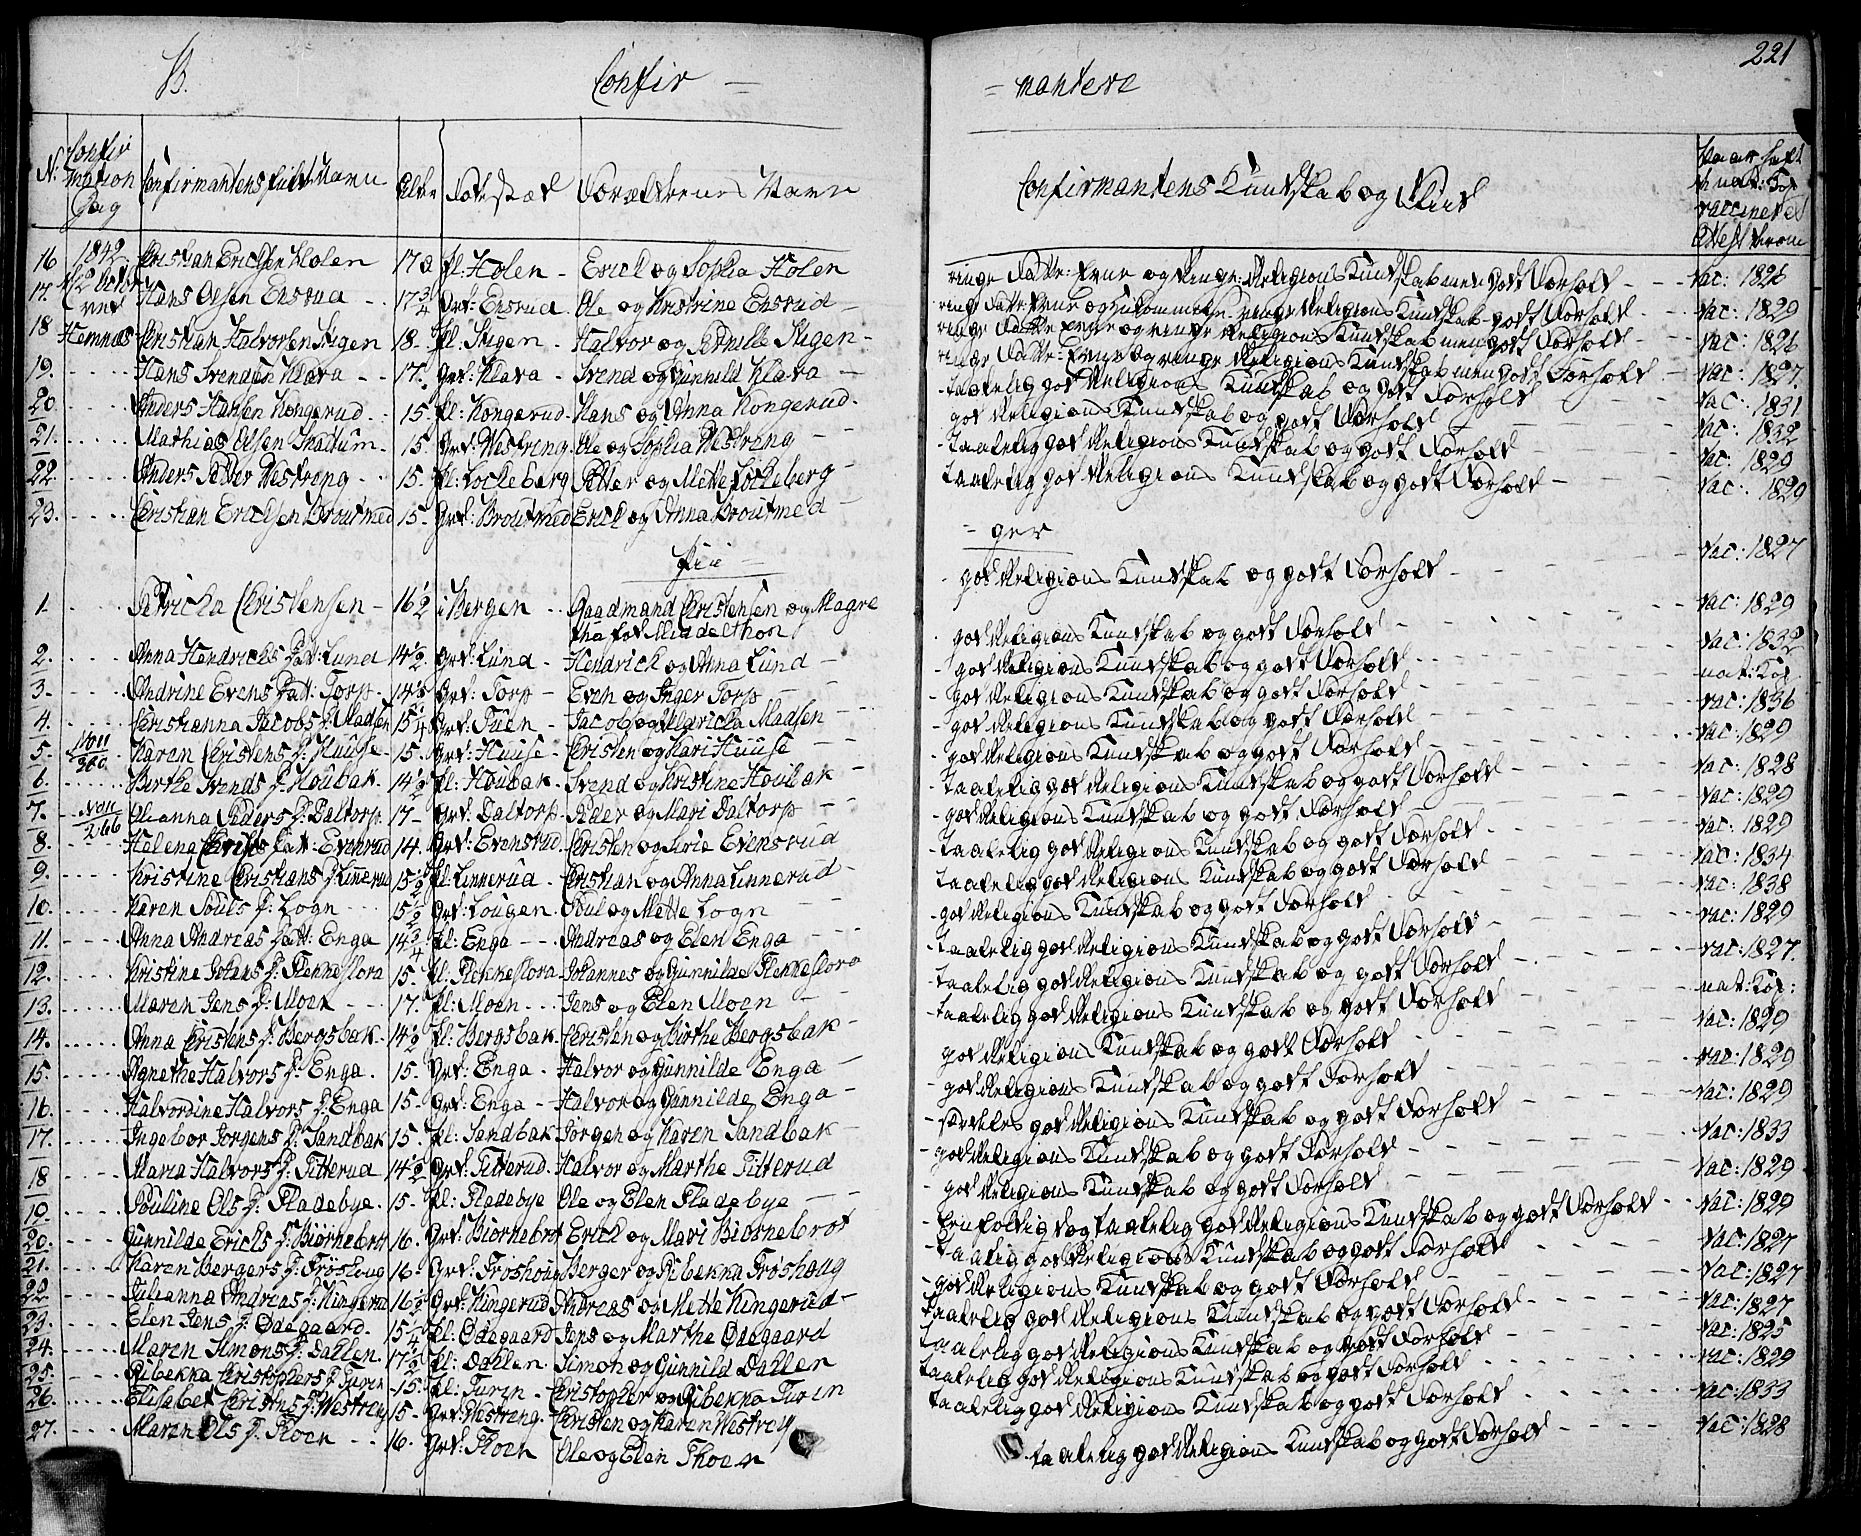 B.
Confir —
= mantere
221
N:
Confir
mation
Dag
Confirmantens fulde Navn
Alder
Fødestæd
Forældrenes Navn
Confirmantens Kundskab og Flid
nat: Kop
vaccineret
16 1842 Christian Erichsen Holen 17 a pl: Holen - Erick og Sophia Holen ringe Religions Kundskab men godt Forhold - vac: 1826
17. Hans Olsen Ensrud - 17 3/4 Grd: Ensrud. Ole og Kristine Ensrud - ringe Religions Kundskab godt Forhold - vac: 1829
18 Hemnæs Christian Halvorsen Skigen 18. pl: Skigen - Halvor og Pernille Skigen - ringe Religions Kundskab men godt Forhold - vac: 1826
19. Hans Svendsen Klæva - 17. Grd: Klæva - Svend og Gunnild Klæva - ringe Religions Kundskab men godt Forhold - vac: 1827.
20. Anders Hansen Kongerud 15. pl: Kongerud. Hans og Anna Kongerud. taalelig god Religions Kundskab og godt Forhold vac: 1831
21. Mathias Olsen 15. Grd: Westreng. Ole og Sophia Westreng - god Religions Kundskab og godt Forhold vac: 1832
22. Anders Peder Westreng 15. pl: Lockeberg Petter og Mette Lockeberg taalelig god Religions Kundskab og godt Forhold vac: 1829
23. Christian Erichsen Broutmed 15- Grd: Broutmed Erick og Anna Broutmed - taalelig god Religions Kundskab og godt Forhold vac: 1829
Pii —
- ger
1. Petricka Christensen - 16 1/2 i Bergen - Raadmand Christensen og Magre
tha fød Middelthon
god Religions Kundskab og godt Forhold - vac: 1827
2. Anna Hendrichs Dat: Lund 14 1/2. Grd: Lund - Hendrick og Anna Lund - god Religions Kundskab og godt Forhold - vac: 1829
3. Andrine Evens Dat: Torp - 14 1/2 Grd: Torp - Even og Inger Torp - god Religions Kundskab og godt Forhold - vac: 1832
4. Christianna Jacobs D. Madsen 15 1/4 Grd: Tuen - Jacob og Maricka Madsen - god Religions Kundskab og godt Forhold nat: Kop
5. Karen Christens D: Huuse - 15. Grd: Huuse - Christen og Mari Huuse - god Religions Kundskab og godt Forhold - vac: 1836
6. Berthe Svends D: Houbak 14 1/2 pl: Houbak - Svend og Kristine Houbak god Religions Kundskab og godt Forhold vac: 1829
7. Olianna Peders D: Daltorp. 17- Grd: Daltorp. Peder og Mari Daltorp - taalelig god Religions Kundskab og godt Forhold - vac: 1828
8. Helena Christs Dat: Evenrud 14. Grd: Evensrud - Christen og Sirie Evensrud god Religions Kundskab og godt Forhold - vac: 1829
9. Kristine Christians D. Linnerud 15 1/2 pl: Linnerud - Christian og Anna Linnerud - taalelig god Religions Kundskab og godt Forhold - vac: 1829
10. Karen Pouls D: Logn 15 1/2 Grd: Lougen. Poul og Mette Logn taalelig god Religions Kundskab og godt Forhold - vac: 1834
11. Anna Andreas Dat: Enga 14 3/4 pl: Enga - Andreas og Elen Enga god Religions Kundskab og godt Forhold vac: 1838
12. Kristine Johans D: Flenkeslora 15. pl: Flenkeslora - Johannes og Gunnilde Flenkeslora taalelig god Religions Kundskab og godt Forhold - vac: 1829
13. Maren Jens D: Moen - 17. pl: Moen - Jens og Elen Moen - taalelig god Religions Kundskab og godt Forhold vac: 1827.
14. Anna Christens D: Bergsbak - 14 1/2 pl: Bergsbak - Christen og Birthe Bergsbak taalelig god Religions Kundskab og godt Forhold nat: Kop:
15. Agnethe Halvors D: Enga. 15. Grd: Enga - Halvor og Gunnilde Enga - god Religions Kundskab og godt Forhold vac: 1829
16. Halvordine Halvors D: Enga 15- Grd: Enga - Halvor og Gunnilde Enga god Religions Kundskab og godt Forhold vac: 1829
17. Ingebor Jorgens D: Sandbak 15. pl: Sandbak Jørgen og Karen Sandbak særdeles god Religions Kundskab og godt Forhold vac: 1829
18 Maria Halvors D: Titterud 14 1/2 Grd: Titterud - Halvor og Marthe Titterud god Religions Kundskab og godt Forhold vac: 1833
19. Pouline Ols D: Fladebye. 15. pl: Fladebye Ole og Elen Fladebye - god Religions Kundskab og godt Forhold vac: 1829
20. Gunnilde Ericks D: Biørnebrot 16. Grd: Biørnebrot Erick og Mari Biørnebrot Eenfoldig dog taalelig god Religions Kundskab og godt Forhold - vac: 1829
21. Karen Bergers D: Frøshoug 16- Grd: Frøshoug Berger og Ribekka Frøshoug taalig god Religions Kundskab og godt Forhold vac: 1827
22. Julianna Andreas D: Kingerud 16 1/2 Grd: Kingerud Andreas og Mette Kingerud - god Religions Kundskab og godt Forhold vac: 1827
23. Elen Jens D: Ødegaard. 15 1/4 pl: Ødegaard Jens og Marthe Ødegaard taalelig god Religions Kundskab og godt Forhold - vac: 1827
24. Maren Simons D: Dahlen. 17 1/2 pl: Dahlen - Simon og Gunnild Dahlen taalelig god Religions Kundskab og godt Forhold vac: 1825
25. Ribekka Christophers D: Turin 15. pl: Turin - Christopher og Ribekka Turin taalelig god Religions Kundskab og godt Forhold vac: 1829
26. Elisabet Christens D: Westreng 15- Grd: Westreng. Christen og Karen Westreng taalelig god Religions Kundskab og godt Forhold vac: 1833
27. Maren Ols D: Floen - 16. Grd: Floen Ole og Elen Floen taalelig god Religions Kundskab og godt Forhold vac: 1828